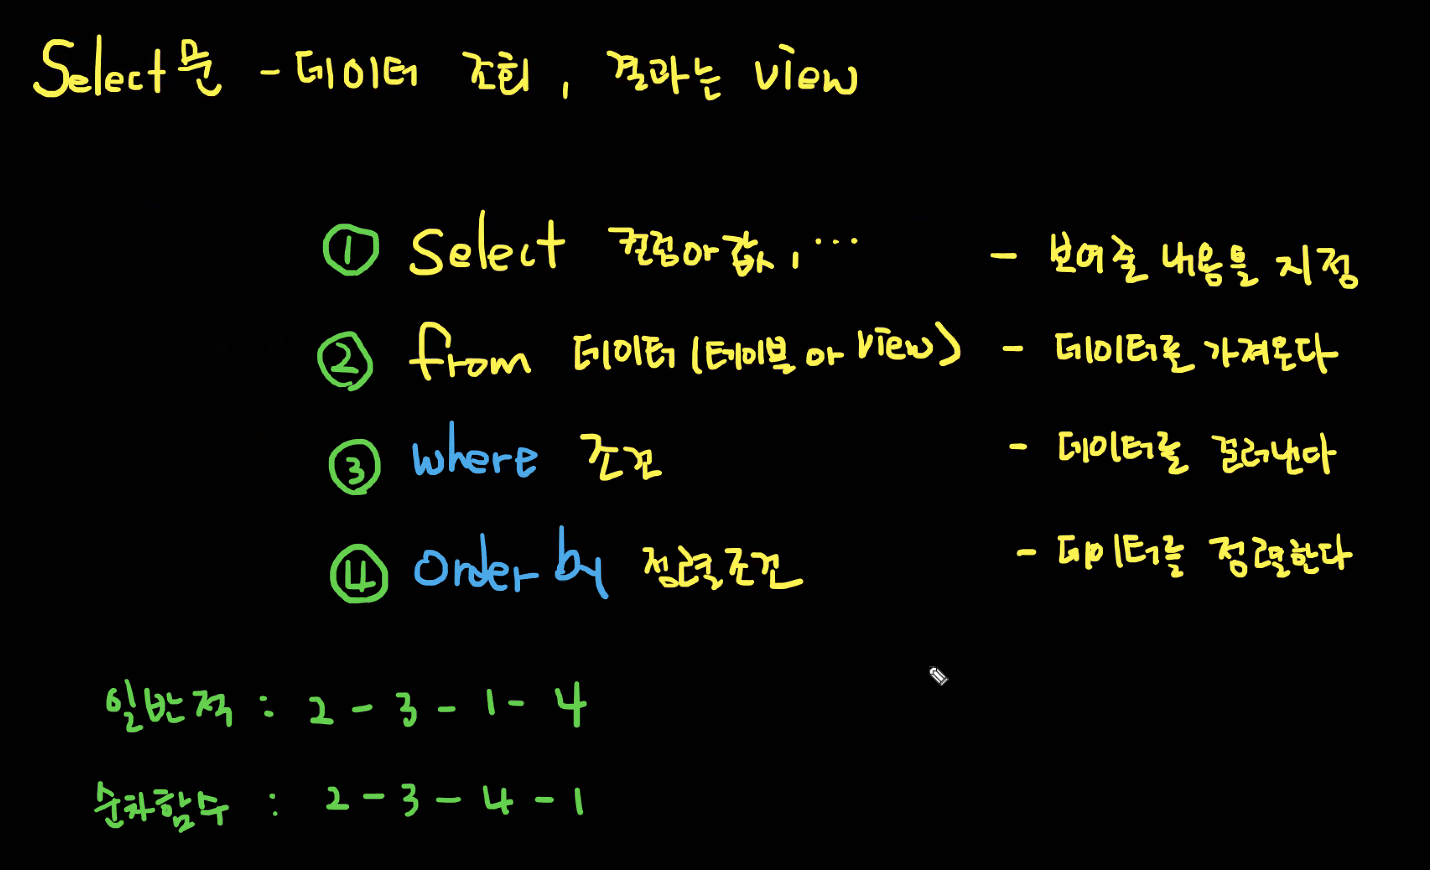 Select문 - 데이터 조회, 결과는 view
① Select 컬럼or값, ... - 보여줄 내용을 지정
② from 데이터(테이블 or view) - 데이터를 가져온다
③ where 조건 - 데이터를 골라낸다
④ Order by 정렬조건 - 데이터를 정렬한다
일반적 : 2 - 3 - 1 - 4
순차함수 : 2 - 3 - 4 - 1